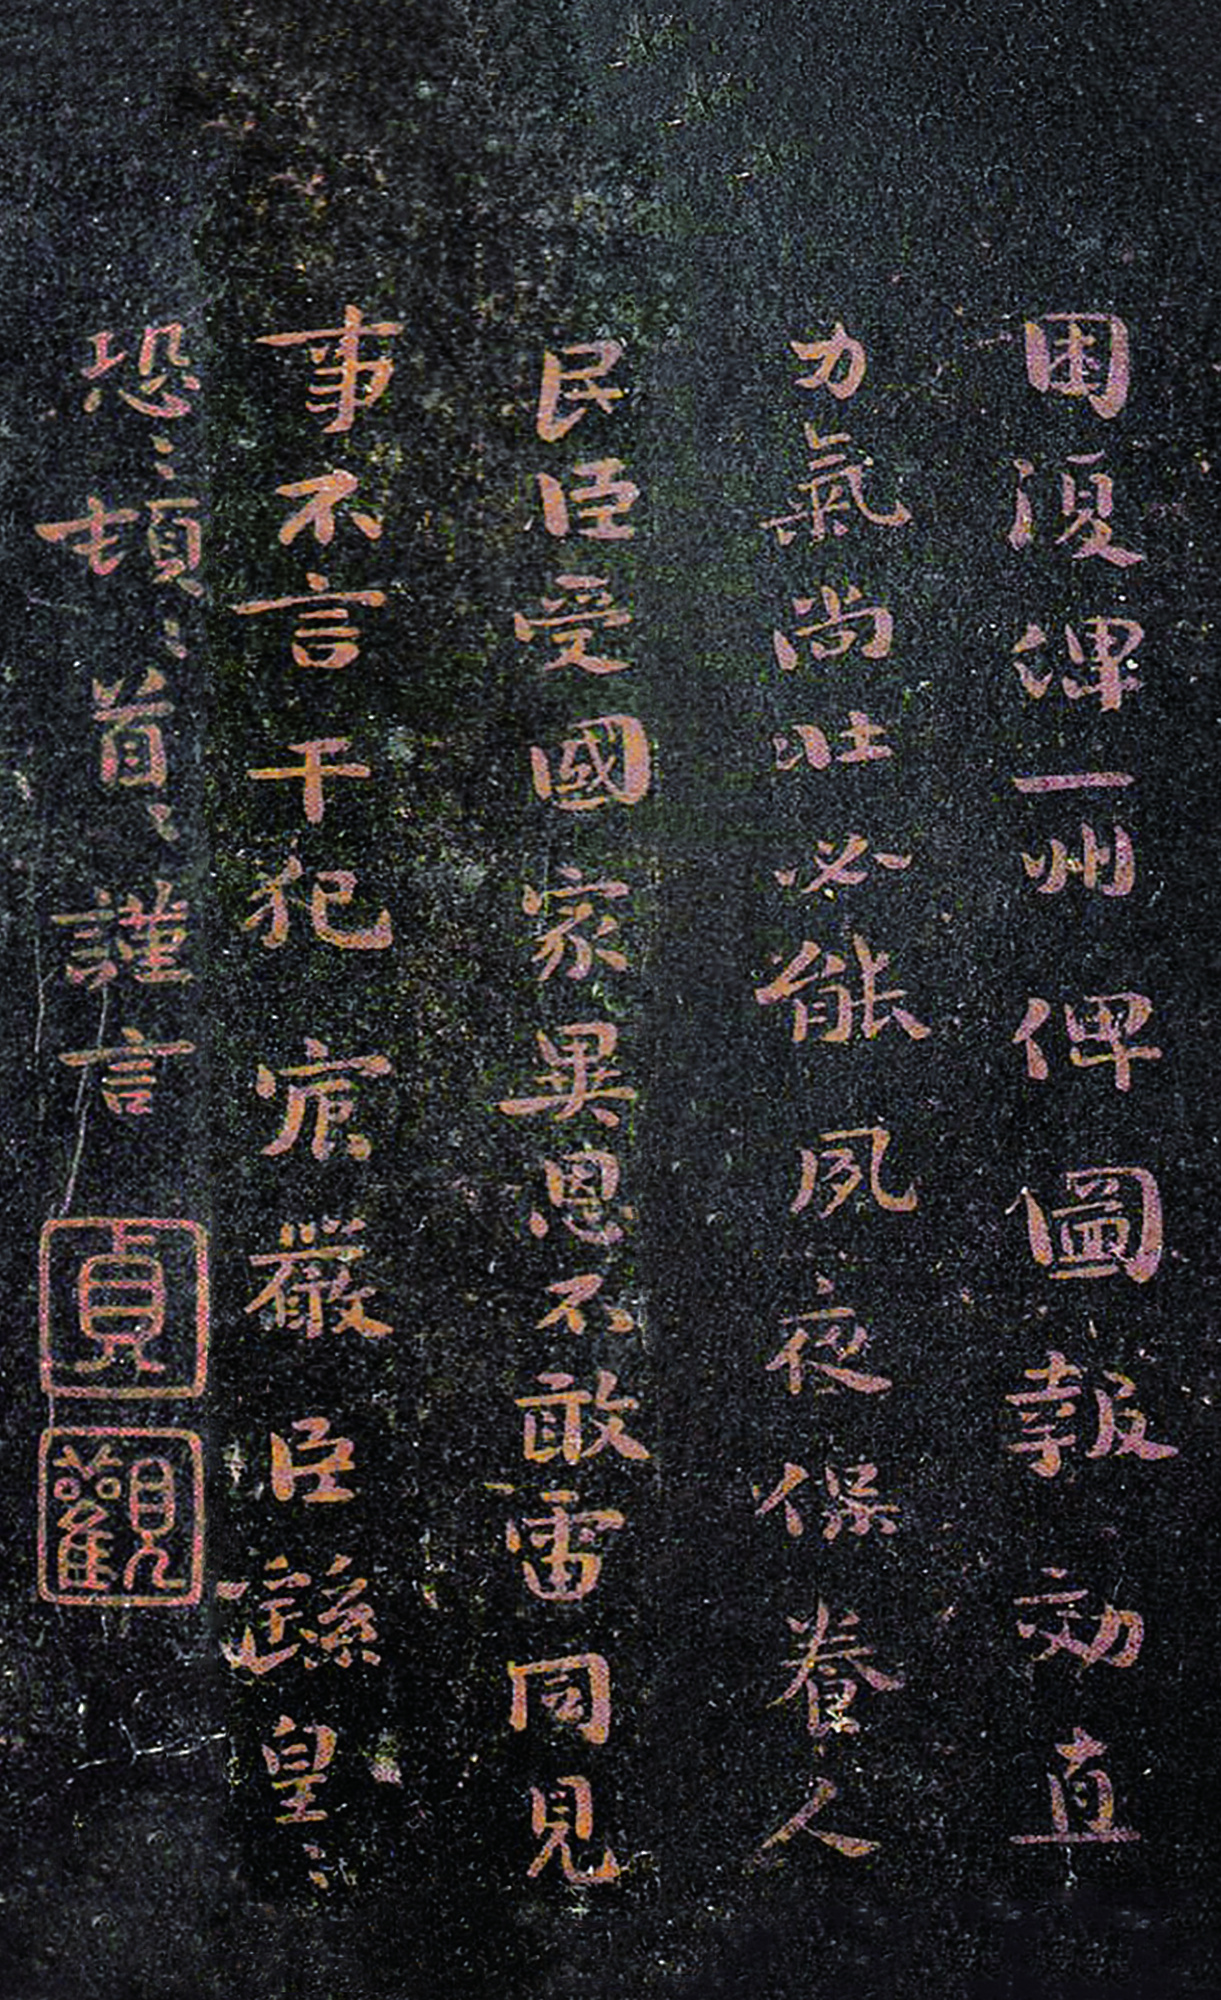 困復俾一州俾圖報効直
力氣尚壯必能夙夜保養人
民臣受國家異恩不敢雷同見
事不言干犯宸嚴臣繇皇〻
恐〻頓〻首〻謹言
貞
觀